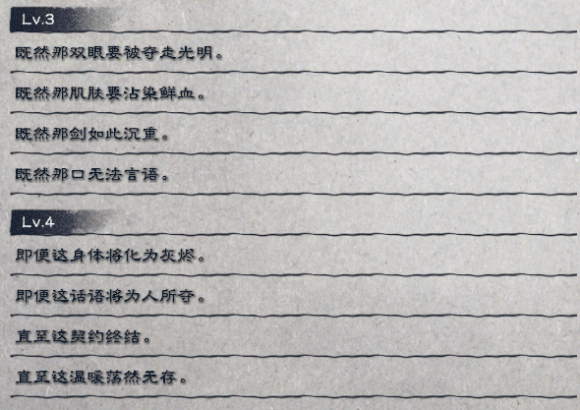 Lv.3
既然那双眼要被夺走光明。
既然那肌肤要沾染鲜血。
既然那剑如此沉重。
既然那口无法言语。
Lv.4
即便这身体将化为灰烬。
即便这话语将为人所夺。
直至这契约终结。
直至这温暖荡然无存。